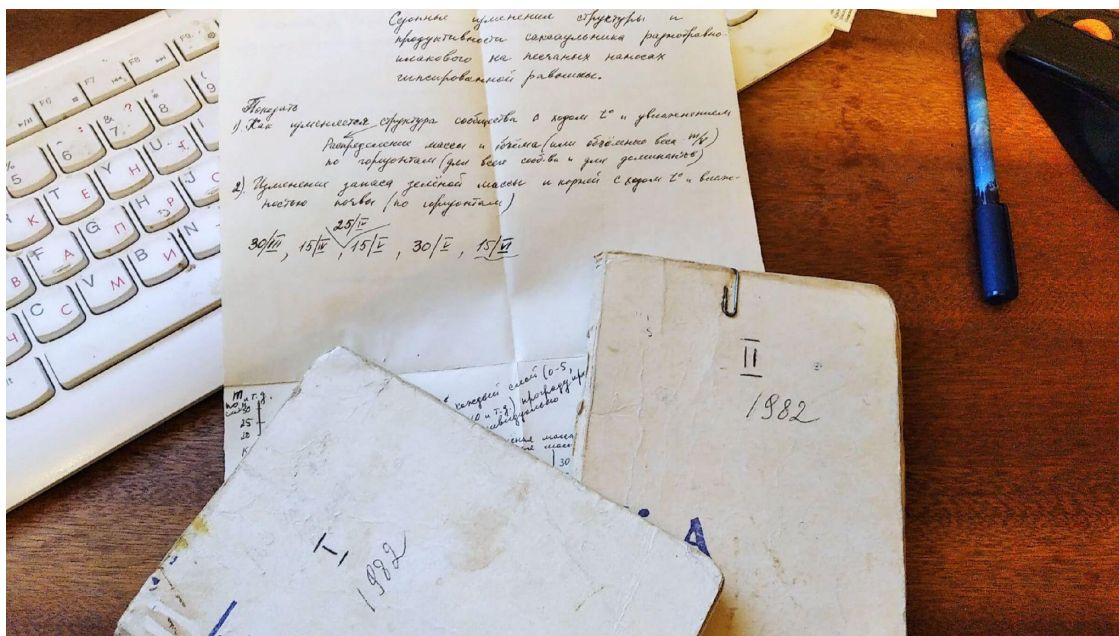 Сезонные изменения структуры и
продуктивности саксаульника разнотравно-
илакового на песчаных наносах
гипсированной равнины.
Показать
1) Как изменяется структура сообщества с ходом t° и увлажнением
Распределение массы и объёма (или объёмного веса m/v)
по горизонтам (для всего сооб-ва и для доминанты)
2) Изменение запаса зелёной массы и корней с ходом t° и влаж-
ностью почвы (по горизонтам)
25/IV
30/III, 15/IV, 15/V, 30/V, 15/VI
каждый слой (0-5,
и т.д.)
и т.д.
30
25
20
30
I
1982
II
1982
А
F6
F7
F8
F9
&
7
?
*
8
(
9
^
6
:
%
5
T
Е
Y
Н
U
Г
К
F
А
G
П
H
Р
J
О
C
С
V
М
B
И
N
Т
Ч
В